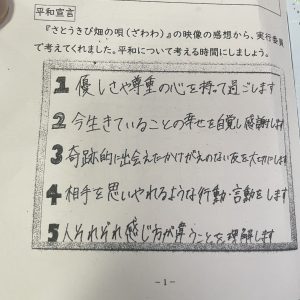 平和宣言
『さとうきび畑の唄(ざわわ)』の映像の感想から、実行委員
で考えてくれました。平和について考える時間にしましょう。
1 優しさや尊重の心を持って過ごします
2 今生きていることの幸せを自覚し感謝します
3 奇跡的に出会えたかけがえのない友を大切にします
4 相手を思いやれるような行動・言動をします
5 人それぞれ感じ方が違うことを理解します
-1-